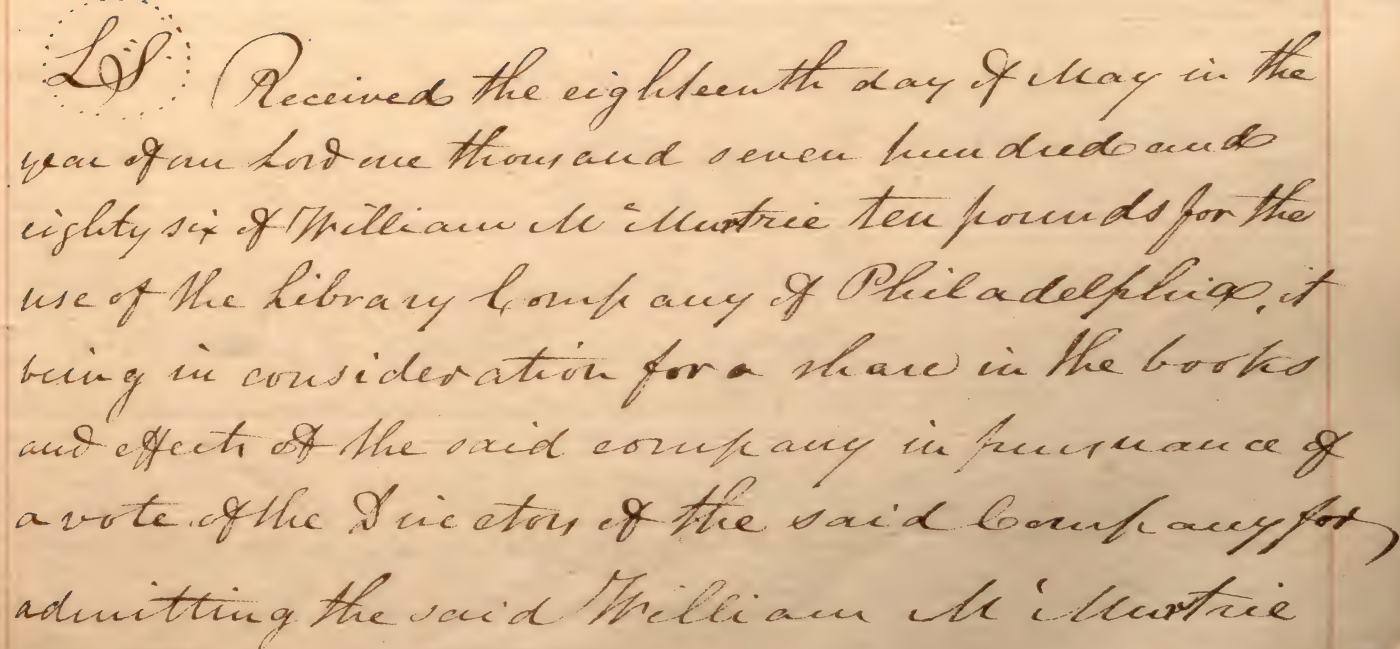 LS Received the eighteenth day of May in the
year of our Lord one thousand seven hundred and
eighty six of William McMurtrie ten pounds for the
use of the Library Company of Philadelphia, it
being in consideration for a share in the books
and effects of the said company in pursuance of
a vote of the Directors of the said Company for
admitting the said William McMurtrie